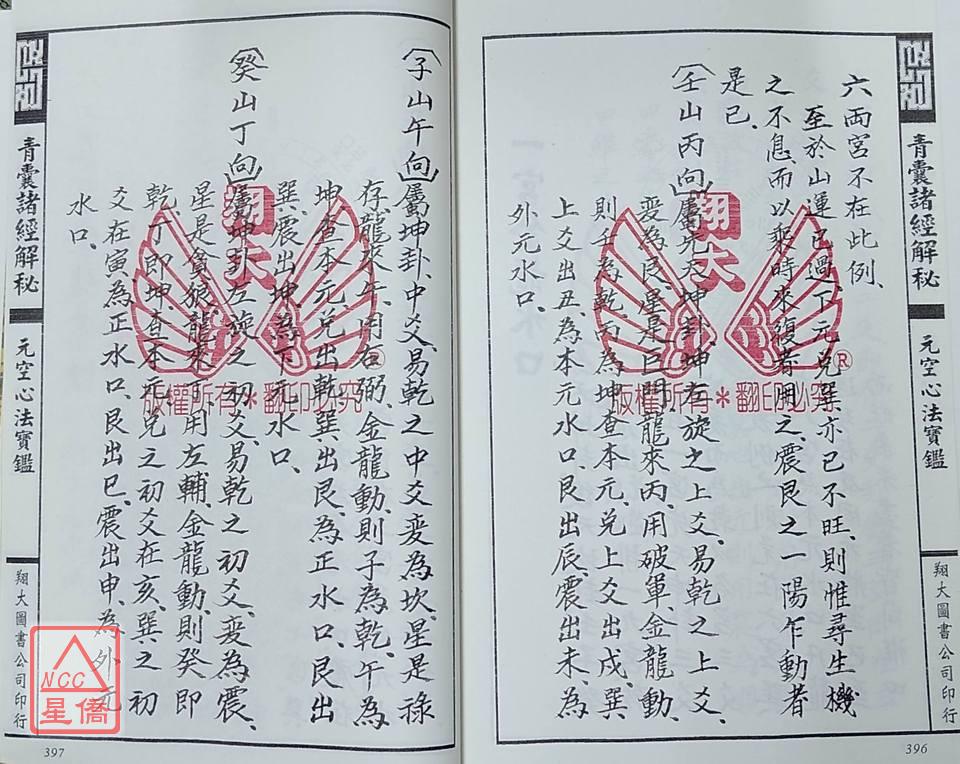 青囊諸經解秘
元空心法寶鑑
翔大圖書公司印行
396
六兩宮不在此例、
至於山運已過、下元兌巽亦已不旺、則惟尋生機
之不息、而以乘時來復者用之、震艮之一陽乍動者
是已、
（壬山丙向）屬先天坤卦、坤左旋之上爻、易乾之上爻、
變為艮、星是巨門、龍來丙、用破軍、金龍動、
則壬為乾、丙為坤、查本元、兌上爻出戌、巽
上爻出丑、為本元水口、艮出辰、震出未、為
外元水口、
翔大
版權所有＊翻印必究
®
（子山午向）屬坤卦、中爻、易乾之中爻、變為坎、星是祿
存、龍來午、用右弼、金龍動、則子為乾、午為
坤、查本元、兌出乾、巽出艮、為正水口、艮出
巽、震出坤、為下元水口、
（癸山丁向）屬坤卦、左旋之初爻、易乾之初爻、變為震、
星是貪狼、龍來丁、用左輔、金龍動、則癸即
乾、丁即坤、查本元、兌之初爻在亥、巽之初
爻在寅、為正水口、艮出巳、震出申、為外元
水口、
翔大
版權所有＊翻印必究
®
青囊諸經解秘
元空心法寶鑑
翔大圖書公司印行
397
NCC
星僑